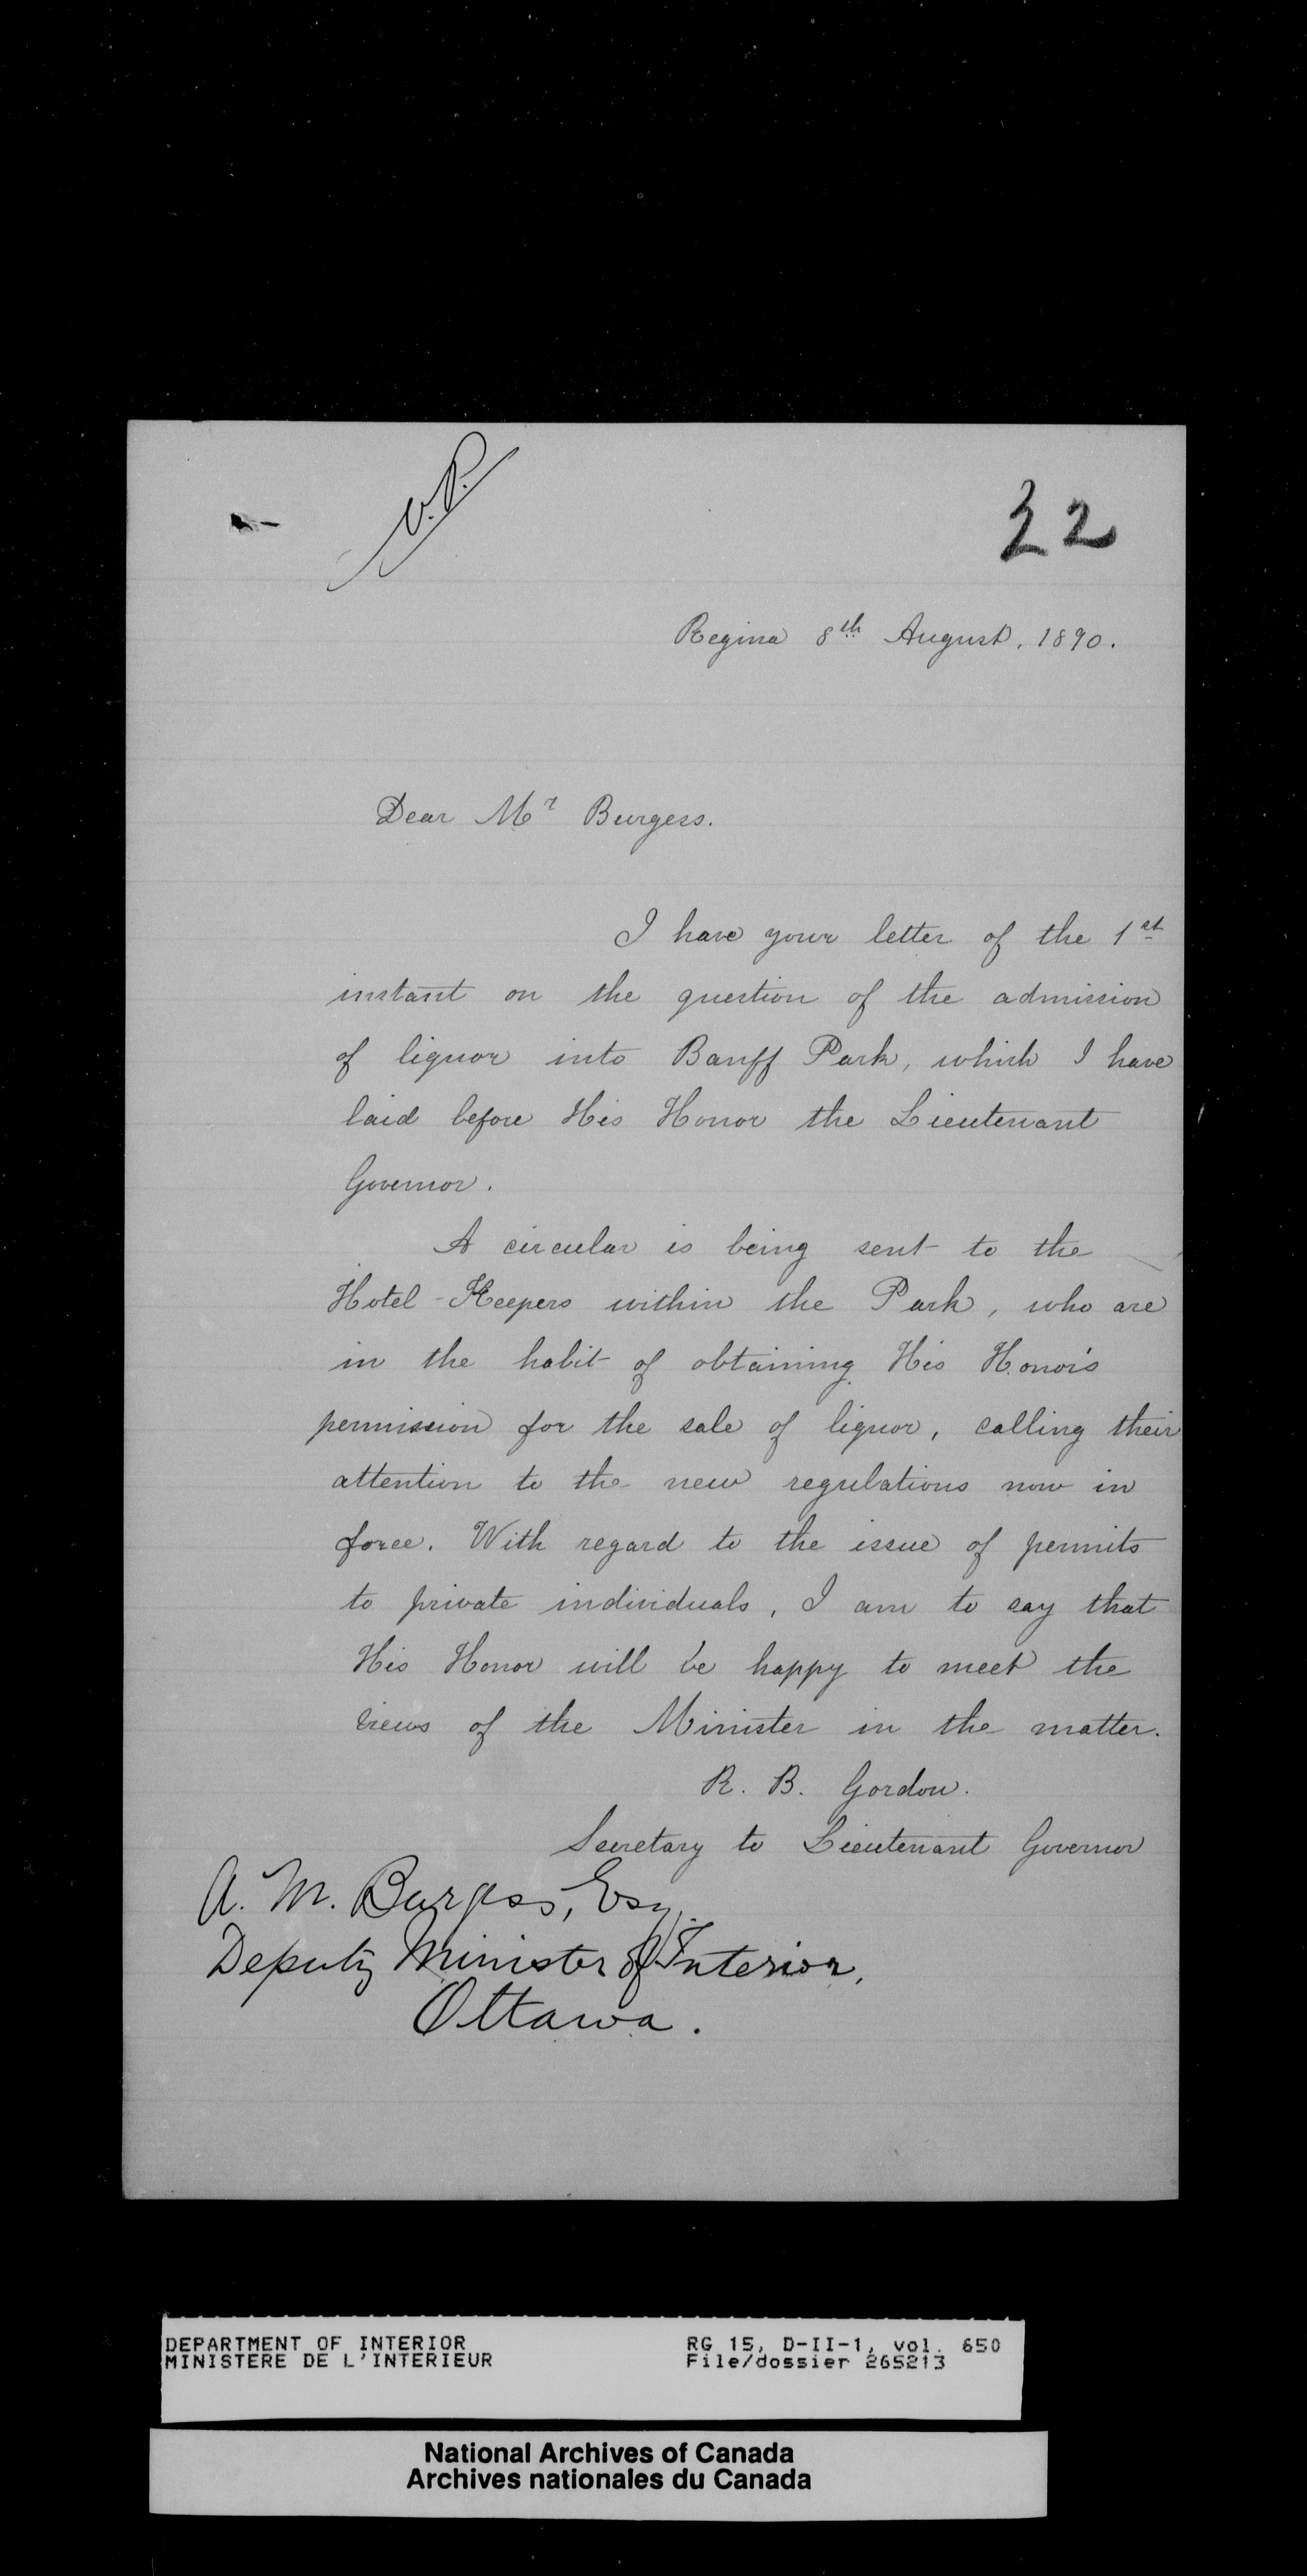 32
Regina 8th August, 1890.
Dear Mr Burgess.
I have your letter of the 1st
instant on the question of the admission
of liquor into Banff Park, which I have
laid before His Honor the Lieutenant
Governor.
A circular is being sent to the
Hotel-Keepers within the Park, who are
in the habit of obtaining His Honor's
permission for the sale of liquor, calling their
attention to the new regulations now in
force. With regard to the issue of permits
to private individuals, I am to say that
His Honor will be happy to meet the
views of the Minister in the matter.
R. B. Gordon.
Secretary to Lieutenant Governor
A. M. Burgess, Esq.
Deputy Minister of Interior,
Ottawa.
DEPARTMENT OF INTERIOR RG 15, D-II-1, vol. 650
MINISTERE DE L'INTERIEUR File/dossier 265213
National Archives of Canada
Archives nationales du Canada